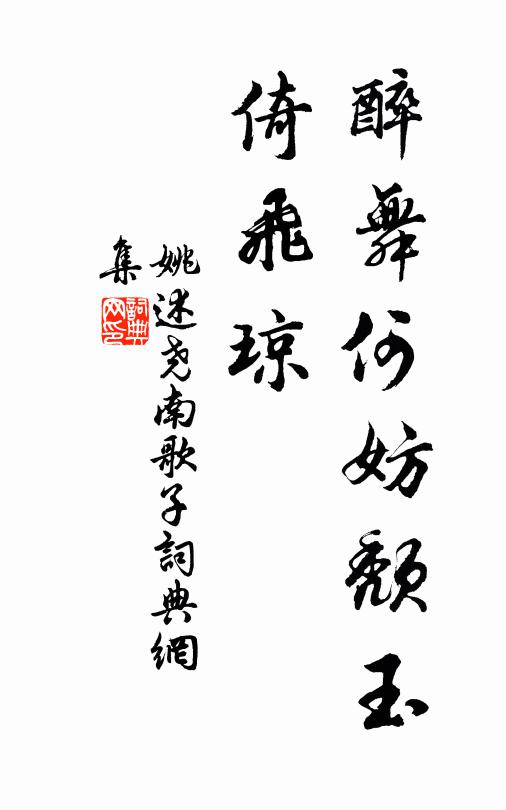 醉舞何妨頹玉
倚飛瓊
姚述尧南歌子詞典網
集
詞典
网印